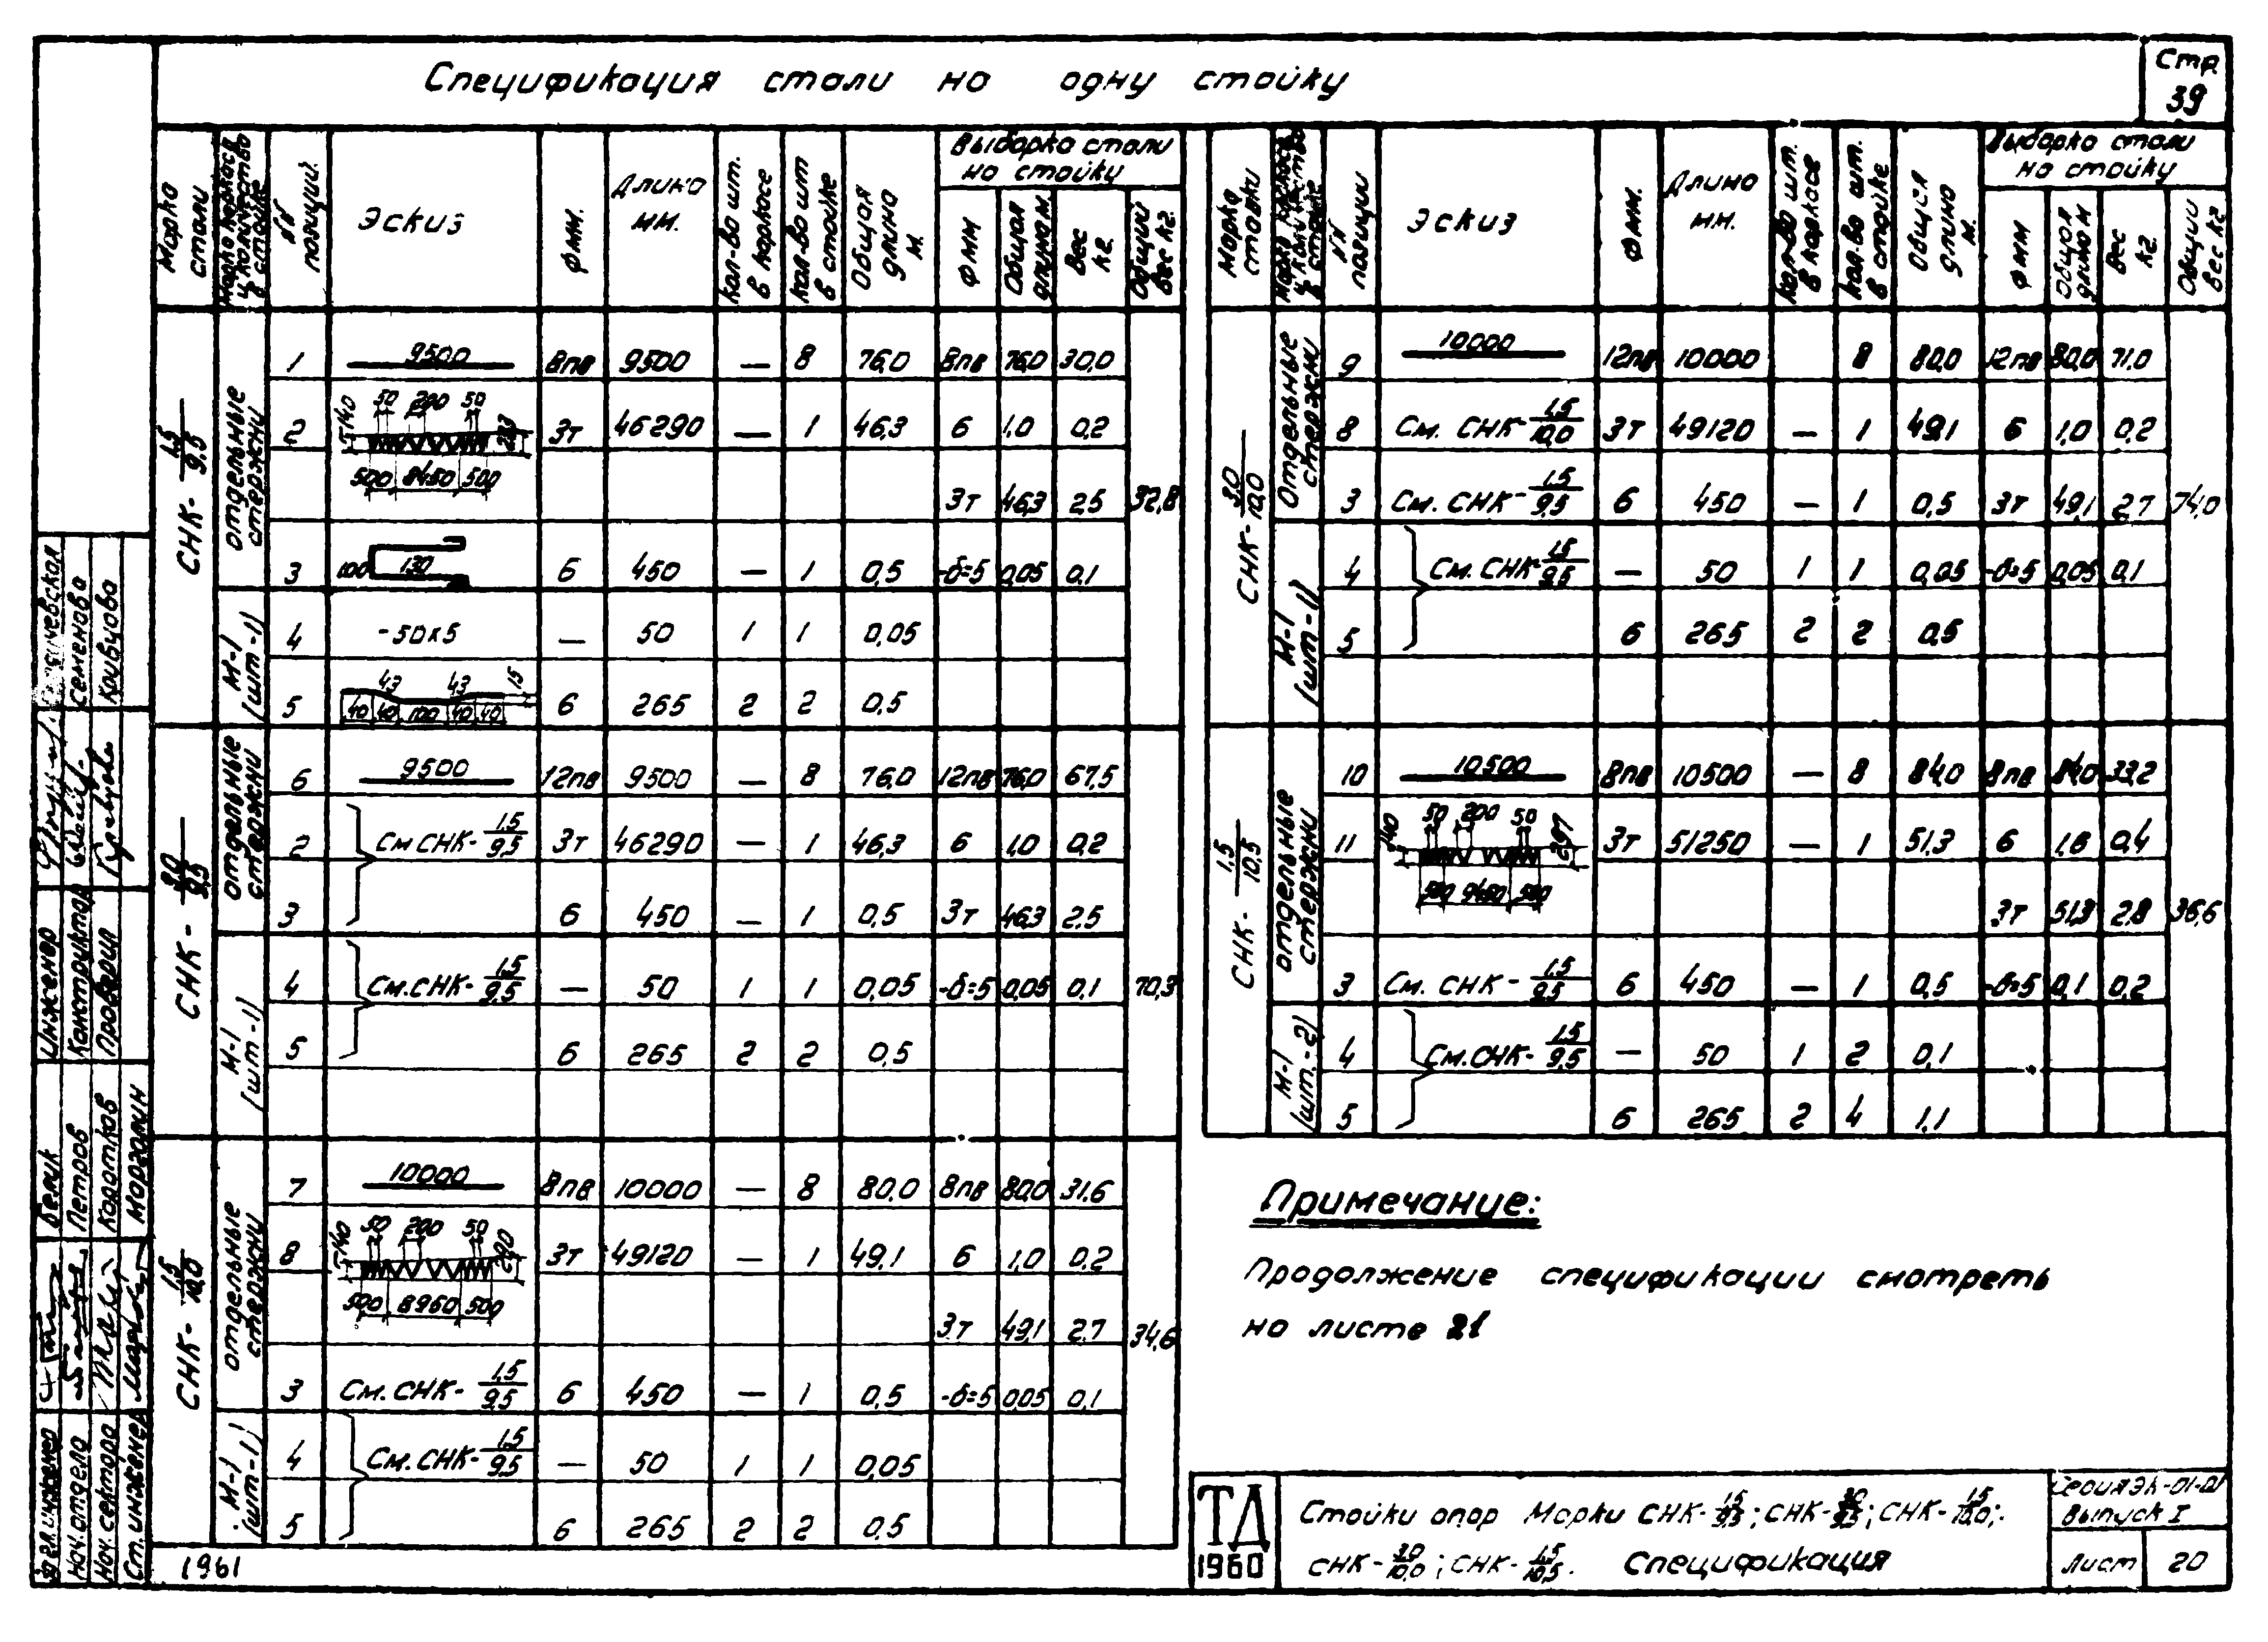 Спецификация стали на одну стойку
Стр. 39
Марка стали | Марка каркаса и количество в стойке | №№ позиций | Эскиз | Ф мм. | Длина мм. | Кол-во шт. в каркасе | Кол-во шт в стойке | Общая длина м. | Выборка стали на стойку | Ф мм | Общая длина м. | Вес кг. | Общий вес кг.
СНК-1,5/9,5
отдельные стержни
1 | 9500 | 8пв | 9500 | — | 8 | 76,0 | 8пв | 76,0 | 30,0
2 | 140 50 200 50 500 8450 500 | 3т | 46290 | — | 1 | 46,3 | 6 | 1,0 | 0,2
3т | 46,3 | 2,5 | 32,8
3 | 100 130 | 6 | 450 | — | 1 | 0,5 | -δ=5 | 0,05 | 0,1
М-1 (шт-1)
4 | -50х5 | — | 50 | 1 | 1 | 0,05
5 | 43 43 15 40 40 100 40 40 | 6 | 265 | 2 | 2 | 0,5
СНК-3,0/9,5
отдельные стержни
6 | 9500 | 12пв | 9500 | — | 8 | 76,0 | 12пв | 76,0 | 67,5
2 | См СНК-1,5/9,5 | 3т | 46290 | — | 1 | 46,3 | 6 | 1,0 | 0,2
3 | 6 | 450 | — | 1 | 0,5 | 3т | 46,3 | 2,5
М-1 (шт-1)
4 | См.СНК-1,5/9,5 | — | 50 | 1 | 1 | 0,05 | -δ=5 | 0,05 | 0,1 | 70,3
5 | 6 | 265 | 2 | 2 | 0,5
СНК-1,5/10,0
отдельные стержни
7 | 10000 | 8пв | 10000 | — | 8 | 80,0 | 8пв | 80,0 | 31,6
8 | 140 50 200 50 290 500 8960 500 | 3т | 49120 | — | 1 | 49,1 | 6 | 1,0 | 0,2
3т | 49,1 | 2,7 | 34,6
3 | См.СНК-1,5/9,5 | 6 | 450 | — | 1 | 0,5 | -δ=5 | 0,05 | 0,1
М-1 (шт-1)
4 | См.СНК-1,5/9,5 | — | 50 | 1 | 1 | 0,05
5 | 6 | 265 | 2 | 2 | 0,5
Марка стойки | Марка каркаса и количество в стойке | №№ позиции | Эскиз | Ф мм. | Длина мм. | Кол-во шт. в каркасе | Кол-во шт. в стойке | Общая длина м. | Выборка стали на стойку | Ф мм | Общая длина м | Вес кг. | Общий вес кг
СНК-3,0/10,0
Отдельные стержни
9 | 10000 | 12пв | 10000 | 8 | 80,0 | 12пв | 80,0 | 71,0
8 | См. СНК-1,5/10,0 | 3т | 49120 | — | 1 | 49,1 | 6 | 1,0 | 0,2
3 | См. СНК-1,5/9,5 | 6 | 450 | — | 1 | 0,5 | 3т | 49,1 | 2,7 | 74,0
М-1 (шт-1)
4 | См. СНК-1,5/9,5 | — | 50 | 1 | 1 | 0,05 | -δ=5 | 0,05 | 0,1
5 | 6 | 265 | 2 | 2 | 0,5
СНК-1,5/10,5
отдельные стержни
10 | 10500 | 8пв | 10500 | — | 8 | 84,0 | 8пв | 84,0 | 33,2
11 | 140 50 200 50 500 9460 500 | 3т | 51250 | — | 1 | 51,3 | 6 | 1,6 | 0,4
3т | 51,3 | 2,8 | 36,6
3 | См. СНК-1,5/9,5 | 6 | 450 | — | 1 | 0,5 | -δ=5 | 0,1 | 0,2
М-1 (шт.-2)
4 | См.СНК-1,5/9,5 | — | 50 | 1 | 2 | 0,1
5 | 6 | 265 | 2 | 4 | 1,1
Примечание:
Продолжение спецификации смотреть
на листе 21
ТД 1960
Стойки опор Марки СНК-1,5/9,5; СНК-3,0/9,5; СНК-1,5/10,0;
СНК-3,0/10,0; СНК-1,5/10,5. Спецификация
Серия ЭК-01-01
Выпуск I
Лист 20
1961
Инженер
Конструктор Семенова
Проверил Кривцова
Гл. инженер Белик
Нач. отдела Петров
Нач. сектора Коротков
Ст. инженер Марголин